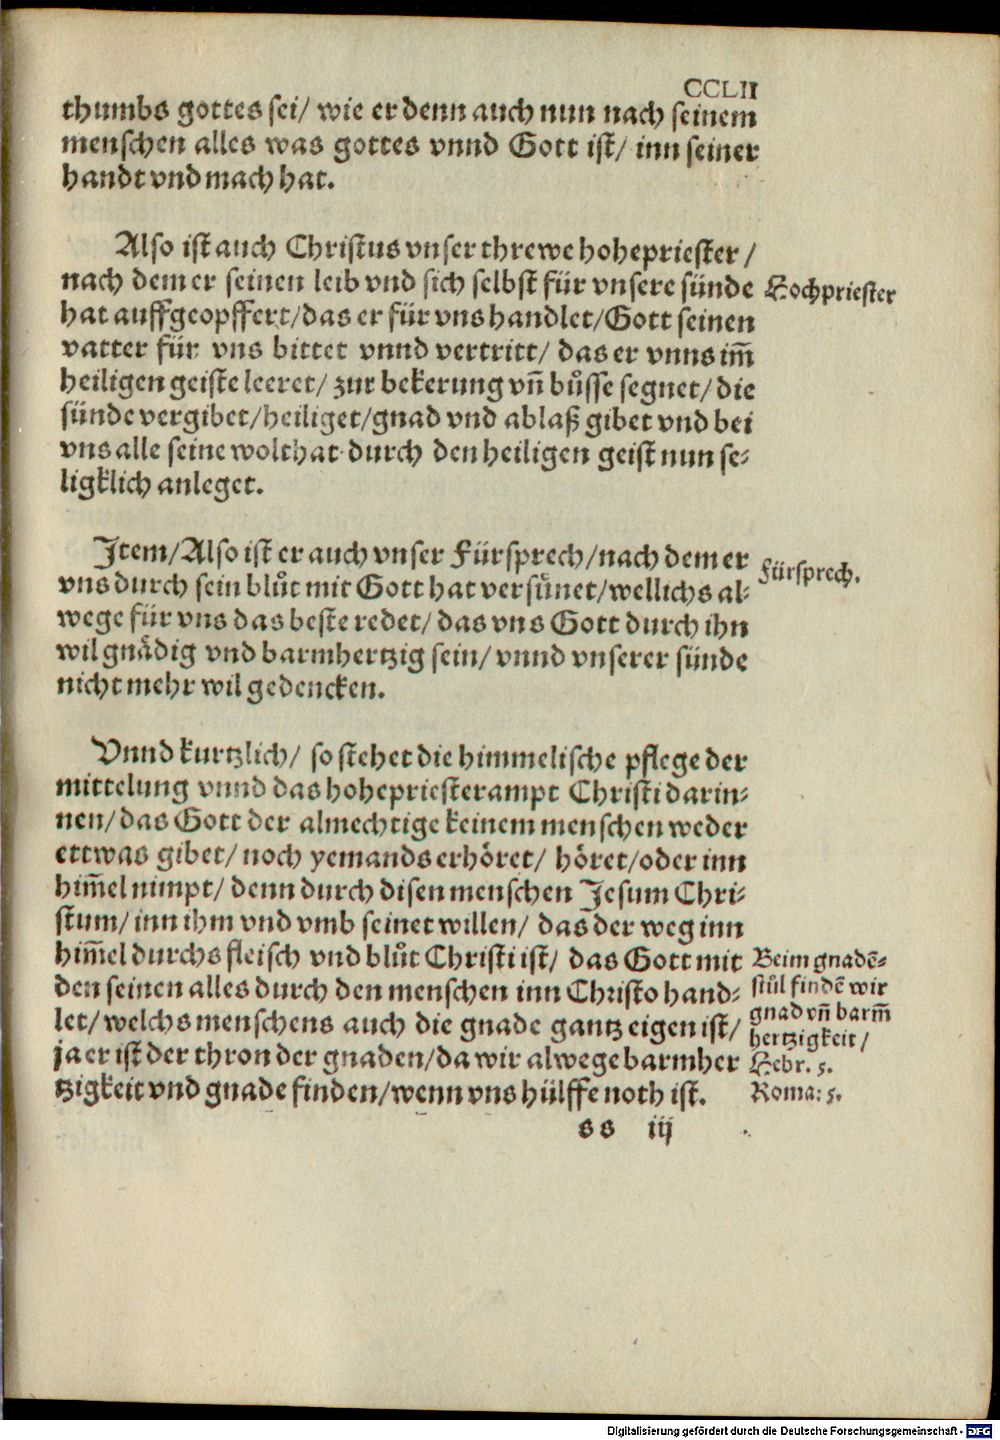 CCLII
thumbs gottes sei/ wie er denn auch nun nach seinem
menschen alles was gottes vnnd Gott ist/ inn seiner
handt vnd mach hat.
Also ist auch Christus vnser threwe hohepriester /
nach dem er seinen leib vnd sich selbst für vnsere sünde
hat auffgeopffert/das er für vns handlet/Gott seinen
vatter für vns bittet vnnd vertritt/ das er vnns im̃
heiligen geiste leeret/ zur bekerung vñ bůsse segnet/ die
sünde vergibet/heiliget/gnad vnd ablaß gibet vnd bei
vns alle seine wolthat durch den heiligen geist nun se⸗
ligklich anleget.
Hochpriester
Item/Also ist er auch vnser Fürsprech/nach dem er
vns durch sein blůt mit Gott hat versůnet/wellichs al⸗
wege für vns das beste redet/ das vns Gott durch ihn
wil gnådig vnd barmhertzig sein/ vnnd vnserer sünde
nicht mehr wil gedencken.
Fürsprech.
Vnnd kurtzlich/ so stehet die himmelische pflege der
mittelung vnnd das hohepriesterampt Christi darin⸗
nen/das Gott der almechtige keinem menschen weder
ettwas gibet/ noch yemands erhöret/ höret/oder inn
him̃el nimpt/ denn durch disen menschen Jesum Chri⸗
stum/ inn ihm vnd vmb seinet willen/ das der weg inn
him̃el durchs fleisch vnd blůt Christi ist/ das Gott mit
den seinen alles durch den menschen inn Christo hand⸗
let/ welchs menschens auch die gnade gantz eigen ist/
ja er ist der thron der gnaden/da wir alwege barmher
tzigkeit vnd gnade finden/wenn vns hülffe noth ist.
Beim gnadẽ⸗
stůl findẽ wir
gnad vñ barm̃
hertzigkeit /
Hebr. 5.
Roma: 5.
ss iij
Digitalisierung gefördert durch die Deutsche Forschungsgemeinschaft - DFG